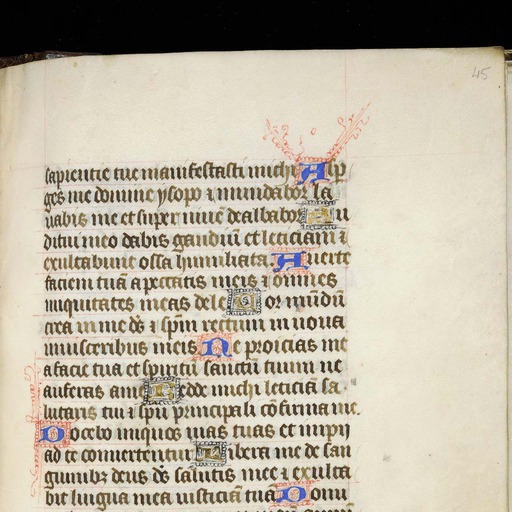 45
sapientie tue manifestasti michi Asp̄
ges me domine ysopo ⁊ mundabor la
uabis me et super niue dealbabor Au
ditui meo dabis gaudiū et leticiam ⁊
exultabunt ossa humiliata Auerte
faciem tuā a peccatis meis ⁊ omnes
iniquitates meas dele Cor mūdū
crea in me ds̄ ⁊ spm̄ rectum innoua
in uisceribus meis Ne proicias me
a facie tua et spiritū sanctū tuum ne
auferas a me Redde michi leticiā sa
lutaris tui ⁊ spū principali cōfirma me.
Docebo iniquos uias tuas et impij
ad te conuertentur Libera me de san
guinibꝫ deus ds̄ salutis mee ⁊ exulta
bit lingua mea iusticiā tuā Domi